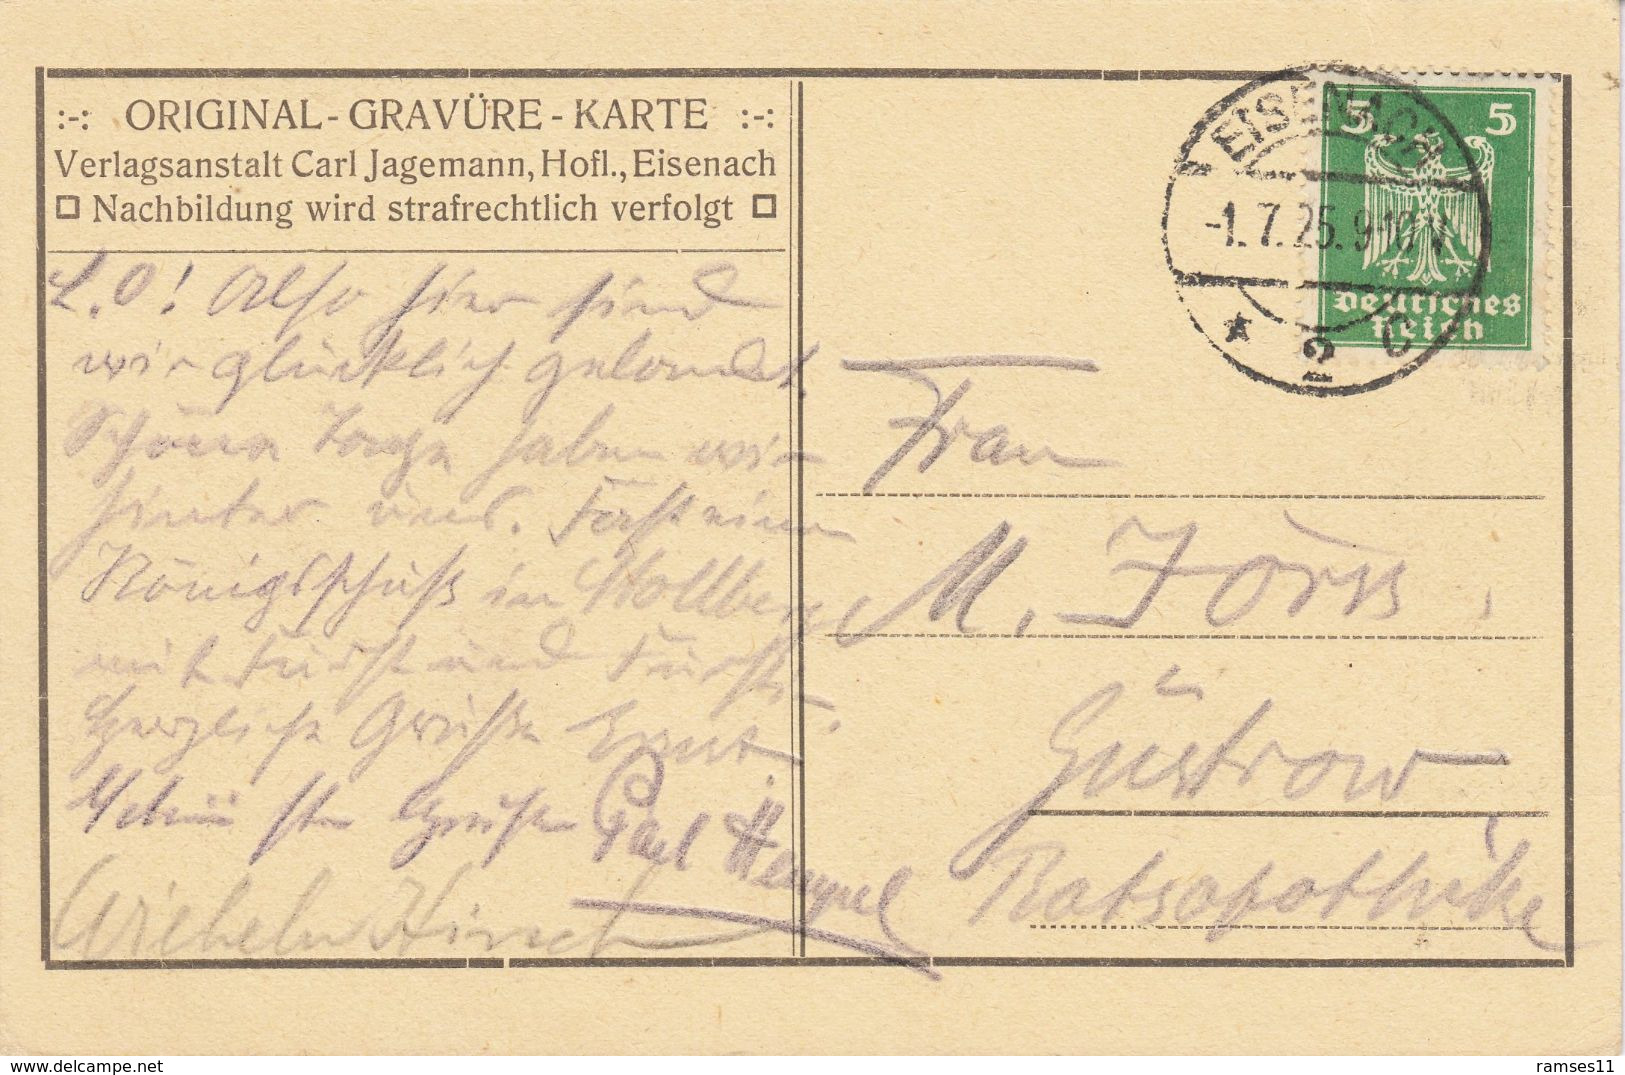 :-: ORIGINAL-GRAVÜRE-KARTE :-:
Verlagsanstalt Carl Jagemann, Hofl., Eisenach
Nachbildung wird strafrechtlich verfolgt
L. O! Also hier sind
wir glücklich gelandet.
Schöne Tage haben wir
hinter uns. Fast einen
Königsschuß in Stollberg
mit Fürst und
Herzliche Grüße Ernst.
Grüße Paul Hempel
Wilhelm Hirsch
EISENACH
-1.7.25.9-10V
* 2 C
5 5
Deutsches
Reich
Frau
M. Jörss,
Güstrow
Ratsapotheke
ramses11